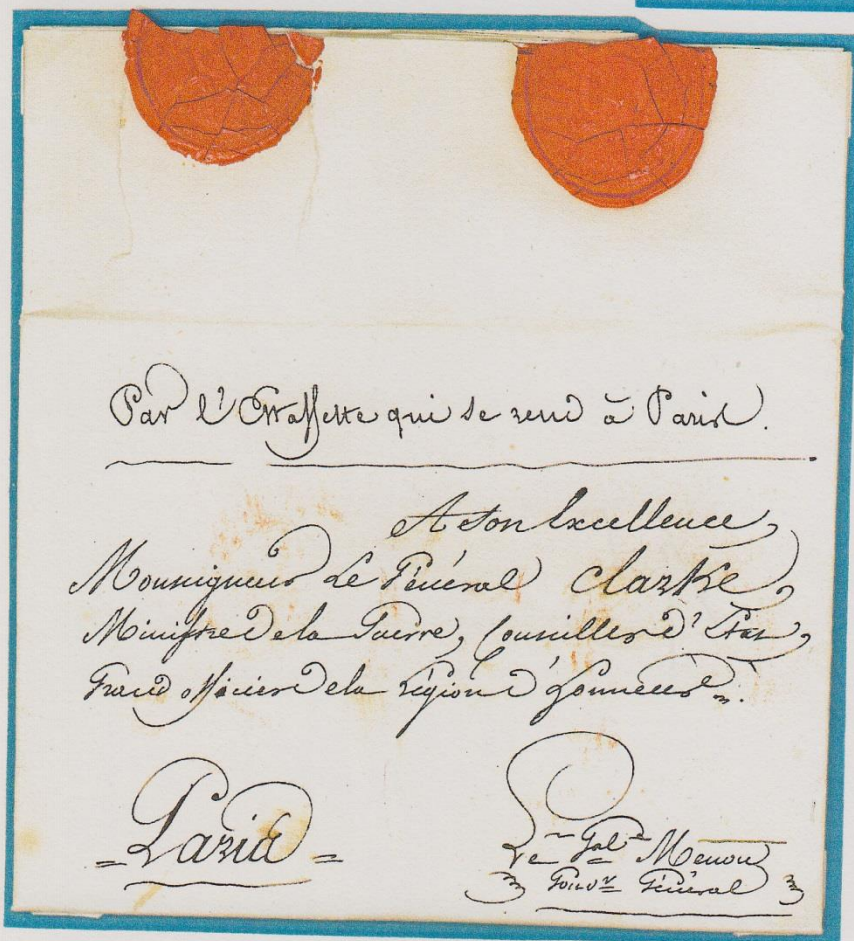 Par l'Estaffette qui se rend à Paris.
A Son Excellence,
Monseigneur Le Général Clarke,
Ministre De la Guerre, Conseiller d'Etat,
Grand officier De la Légion d'honneur.
= Paris =
Le Gal Menou
Gouvr Général